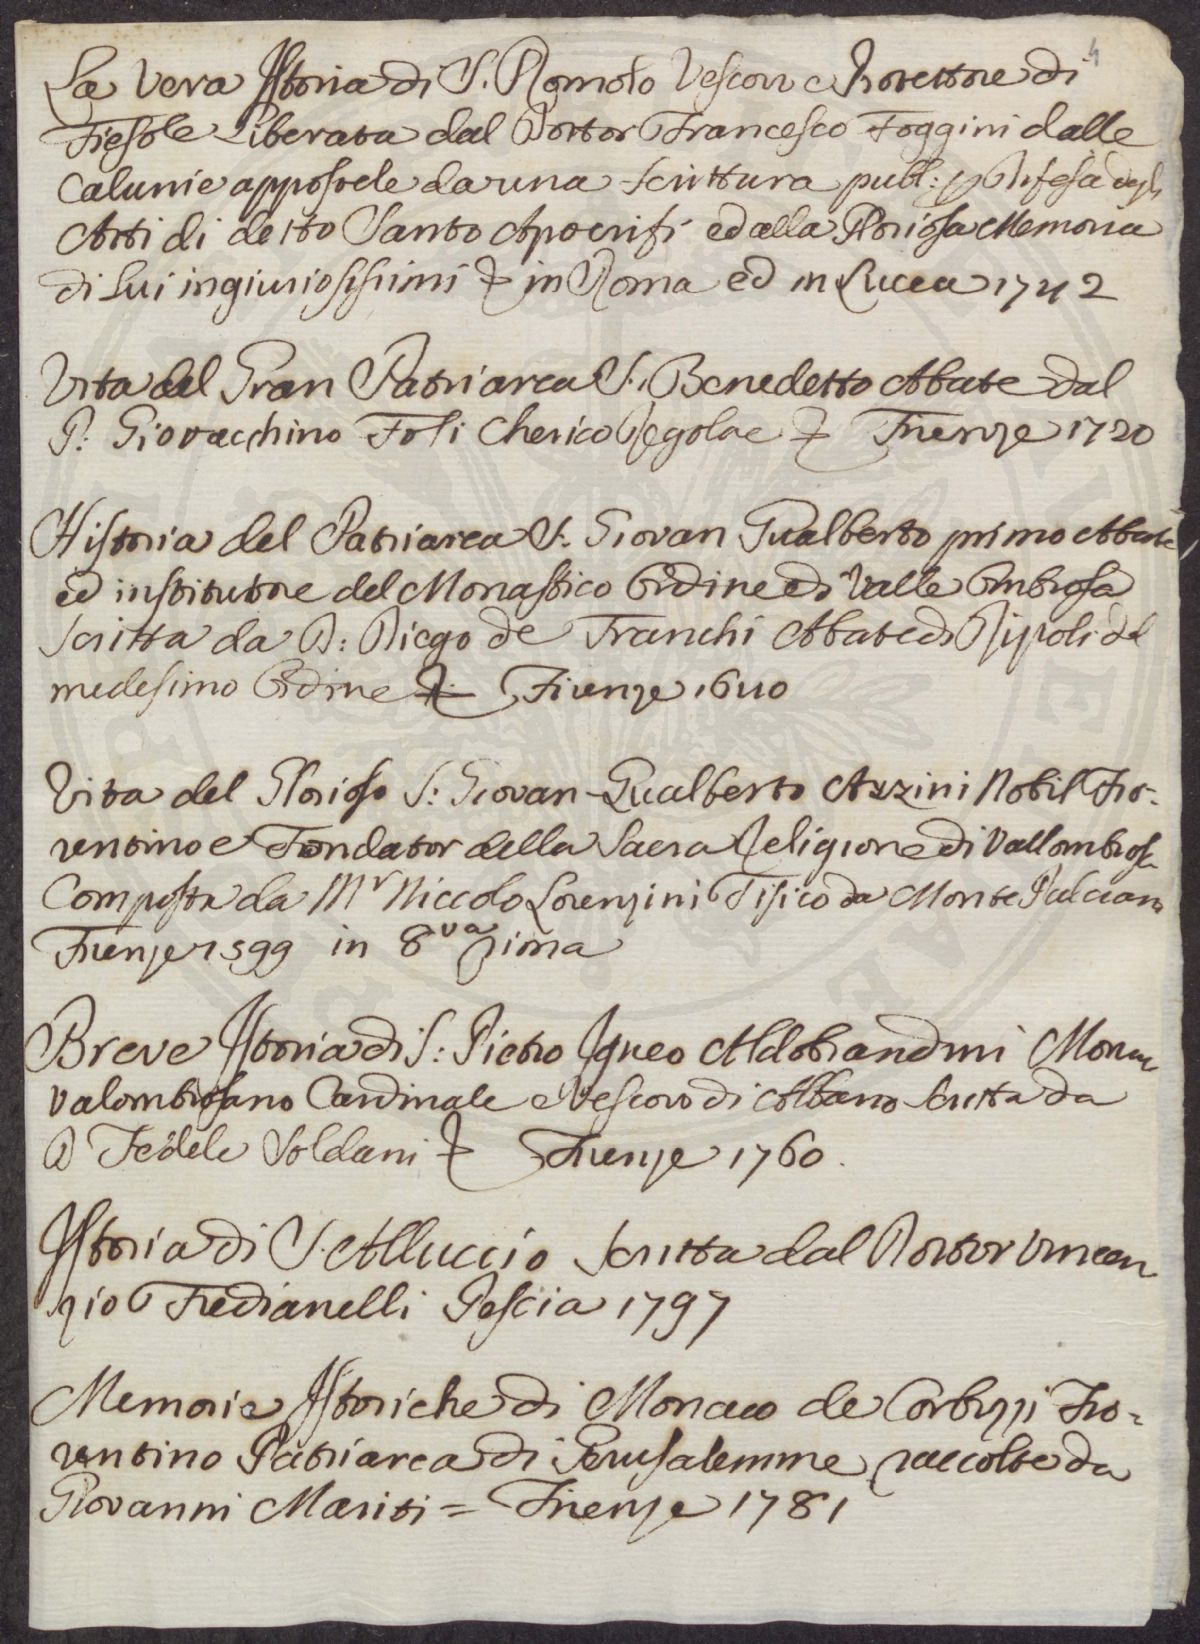 4
La Vera Istoria di S. Romolo Vescovo e Protettore di
Fiesole Liberata dal Dottor Francesco Foggini dalle
Calunie appostele da una Scrittura publ: p Difesa degli
Atti di detto Santo Apocrifi ed alla Gloriosa Memoria
di Lui ingiuriosissimi & in Roma ed in Lucca 1742
Vita del Gran Patriarca S. Benedetto Abate dal
P: Giovacchino Foli Cherico Regolae & Firenze 1720
Historia del Patriarca S. Giovan Gualberto primo Abbate
ed institutore del Monastico Ordine di Valle Ombrosa
scritta da D: Diego de Franchi Abate di Ripoli del
medesimo Ordine & Firenze 1640
Vita del Glorioso S: Giovan-Gualberto Azzini Nobil Fio-
rentino e Fondator della Sacra Religione di Vallombrosa
Composta da Mr Niccolo Lorenzini Fisico da Monte Pulciano
Firenze 1599 in 8va rima
Breve Istoria di S: Pietro Igneo Aldobrandini Monaco
Valombrosano Cardinale e Vescovo di Albano scritta da
D Fedele Soldani & Firenze 1760.
Istoria di S. Alluccio scritta dal Dottor Vincen
zio Fredianelli Pescia 1797
Memorie Istoriche di Monaco de Corbizzi Fio=
rentino Patriarca di Gerusalemme raccolte da
Giovanni Mariti = Firenze 1781